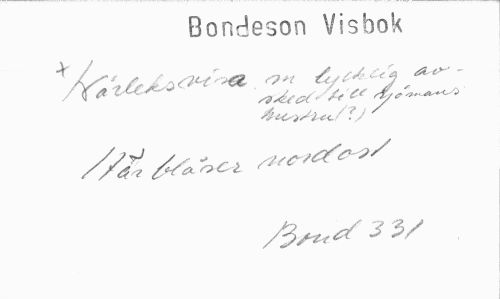 Bondeson Visbok
x Kärleksvisa m lycklig av-
sked till sjömans
hustru(?)
Här blåser nordost
Bond 331